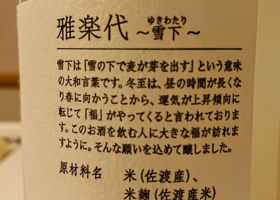 雅楽代 ゆきわたり
～雪下～
雪下は「雪の下で麦が芽を出す」という意味
の大和言葉です。冬至は、昼の時間が長くな
り春に向かうことから、運気が上昇傾向に
転じて「福」がやってくると言われておりま
す。このお酒を飲む人に大きな福が訪れ
ますように。そんな願いを込めて醸しました。
原材料名 米(佐渡産)、
米麹(佐渡産米)